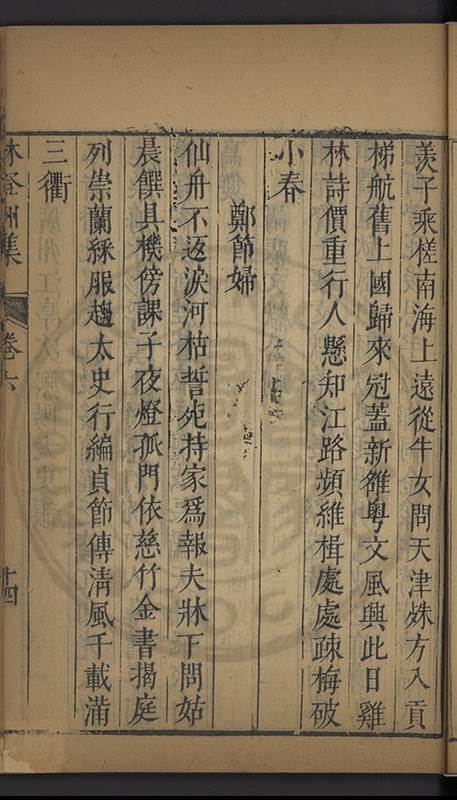 羨子乘槎南海上遠從牛女問天津姝方入貢
梯航舊上國歸來冠蓋新雒粵文風興此日雞
林詩價重行人懸知江路頻維楫處處疎梅破
小春
鄭節婦
仙舟不返淚河枯誓死持家爲報夫牀下問姑
晨饌具機傍課子夜燈孤門依慈竹金書揭庭
列崇蘭綵服趨太史行編貞節傳清風千載滿
三衢
林登州集
卷六
十四